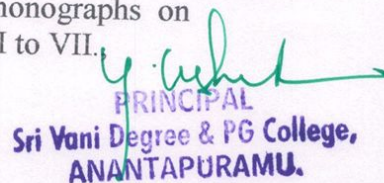 nonographs on
I to VII.
PRINCIPAL
Sri Vani Degree & PG College,
ANANTAPURAMU.